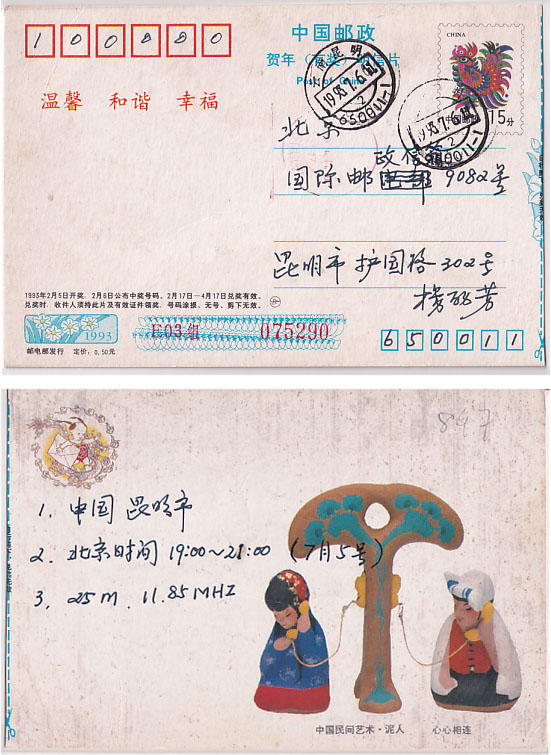 100880
中国邮政
贺年(有奖)明信片
Post of China
CHINA
中国邮政
15分
温馨 和谐 幸福
云南昆明
1993.7.6
2
650011-1
1993.7.6
2
650011-1
北京
政信箱
国际邮 9082号
昆明市护国路302号
1993年2月5日开奖。2月6日公布中奖号码。2月17日—4月17日兑奖有效。
兑奖时,收件人须持此片及有效证件领奖。号码涂损、无号、剪下无效。
1993
邮电部发行 定价:0.50元
E03组 075290
650011
897
1. 中国 昆明市
2. 北京时间 19:00~21:00 (7月5号)
3. 25m. 11.85MHZ
中国民间艺术·泥人 心心相连